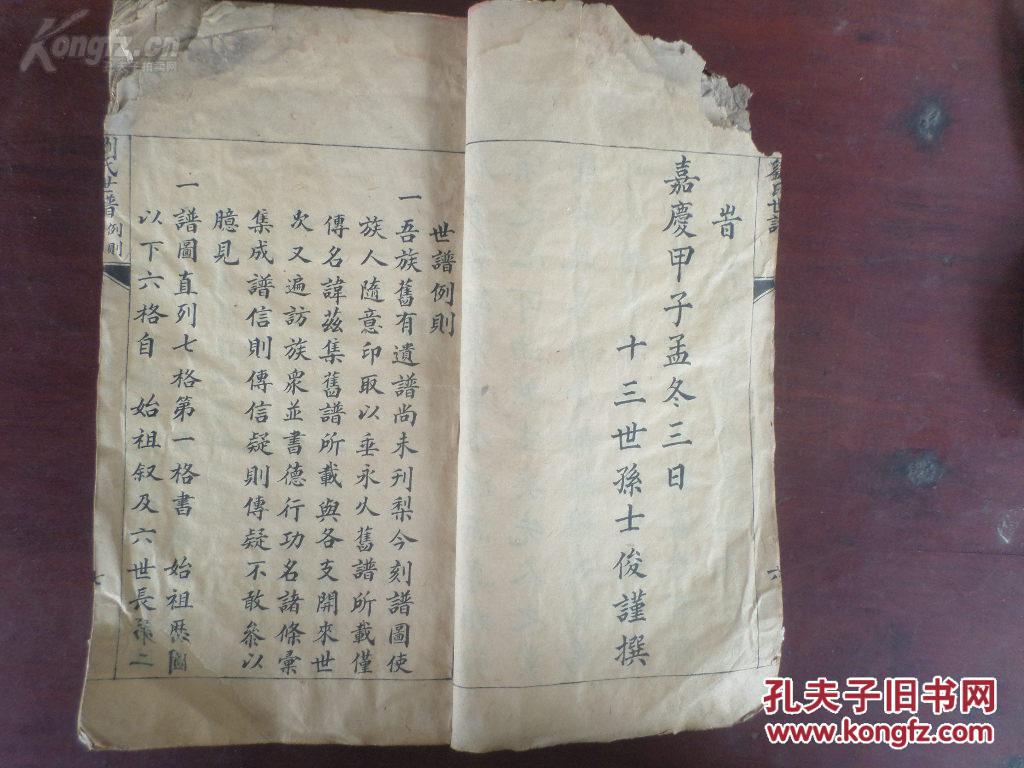 劉氏世譜
旹
嘉慶甲子孟冬三日
十三世孫士俊謹撰
六
世譜例則
一吾族舊有遺譜尚未刊梨今刻譜圖使
族人隨意印取以垂永久舊譜所載僅
傳名諱茲集舊譜所載與各支開來世
次又遍訪族眾並書德行功名諸條彙
集成譜信則傳信疑則傳疑不敢叅以
臆見
一譜圖直列七格第一格書 始祖
以下六格自 始祖叙及六世長第二
劉氏世譜 例則
七
Kongfz.cn
孔夫子旧书网
www.kongfz.com